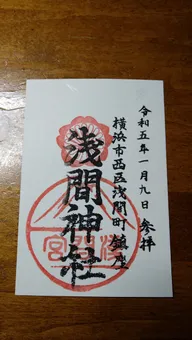 令和五年一月九日 参拝
横浜市西区浅間町鎮座
浅間神社